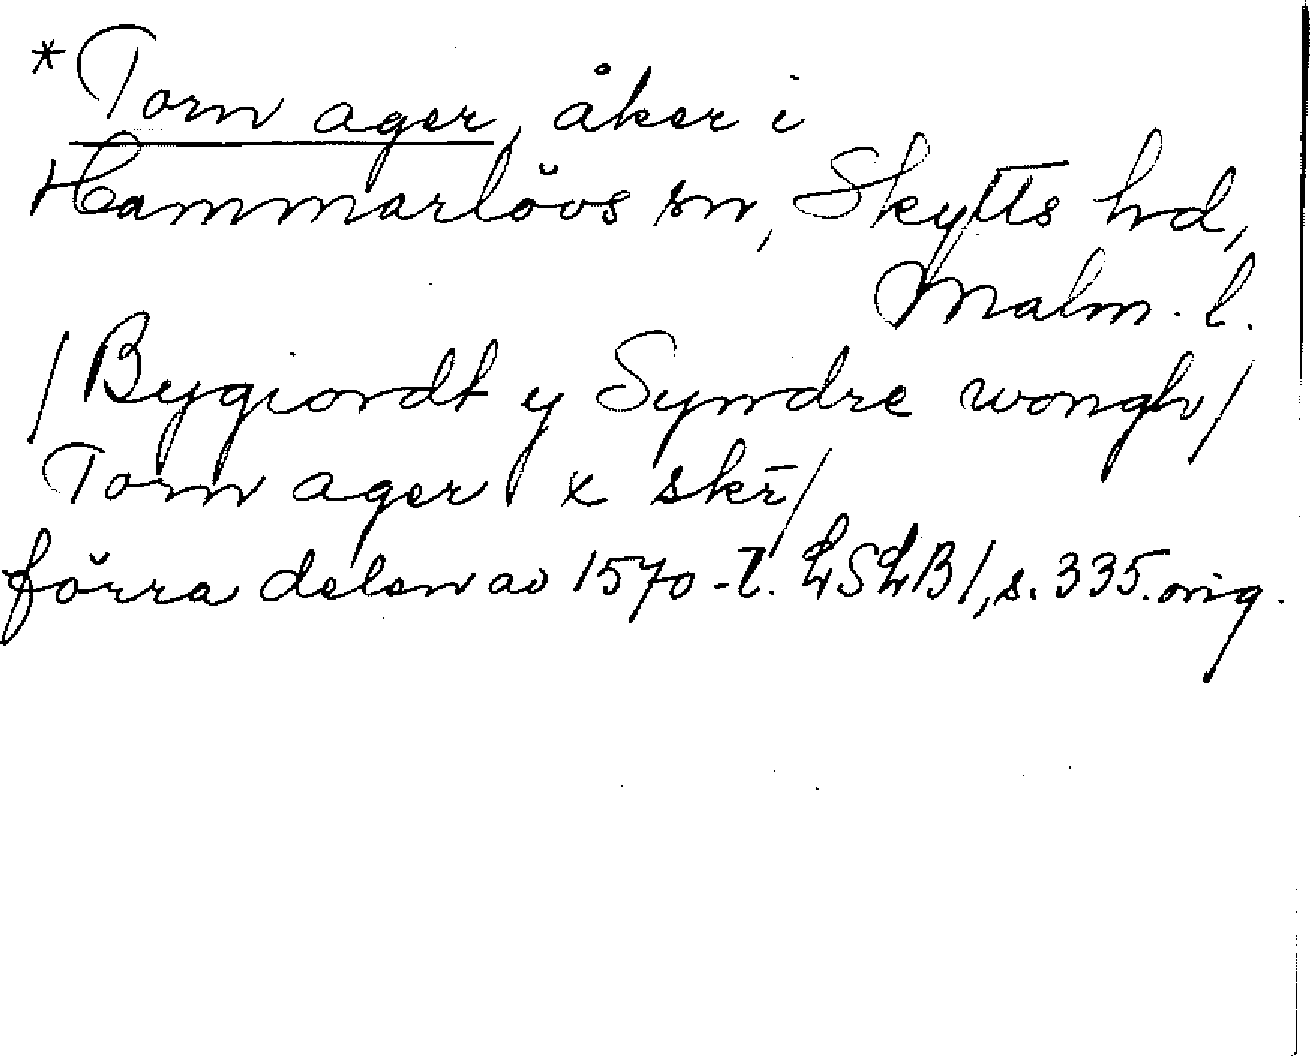 *Torn ager, åker i
Hammarlövs sn, Skytts hd,
Malm. l.
/Bygiordt y Syndre wongh/
Torn ager x skr̄/
förra delen av 1570-t. LSLB1, s. 335. orig.